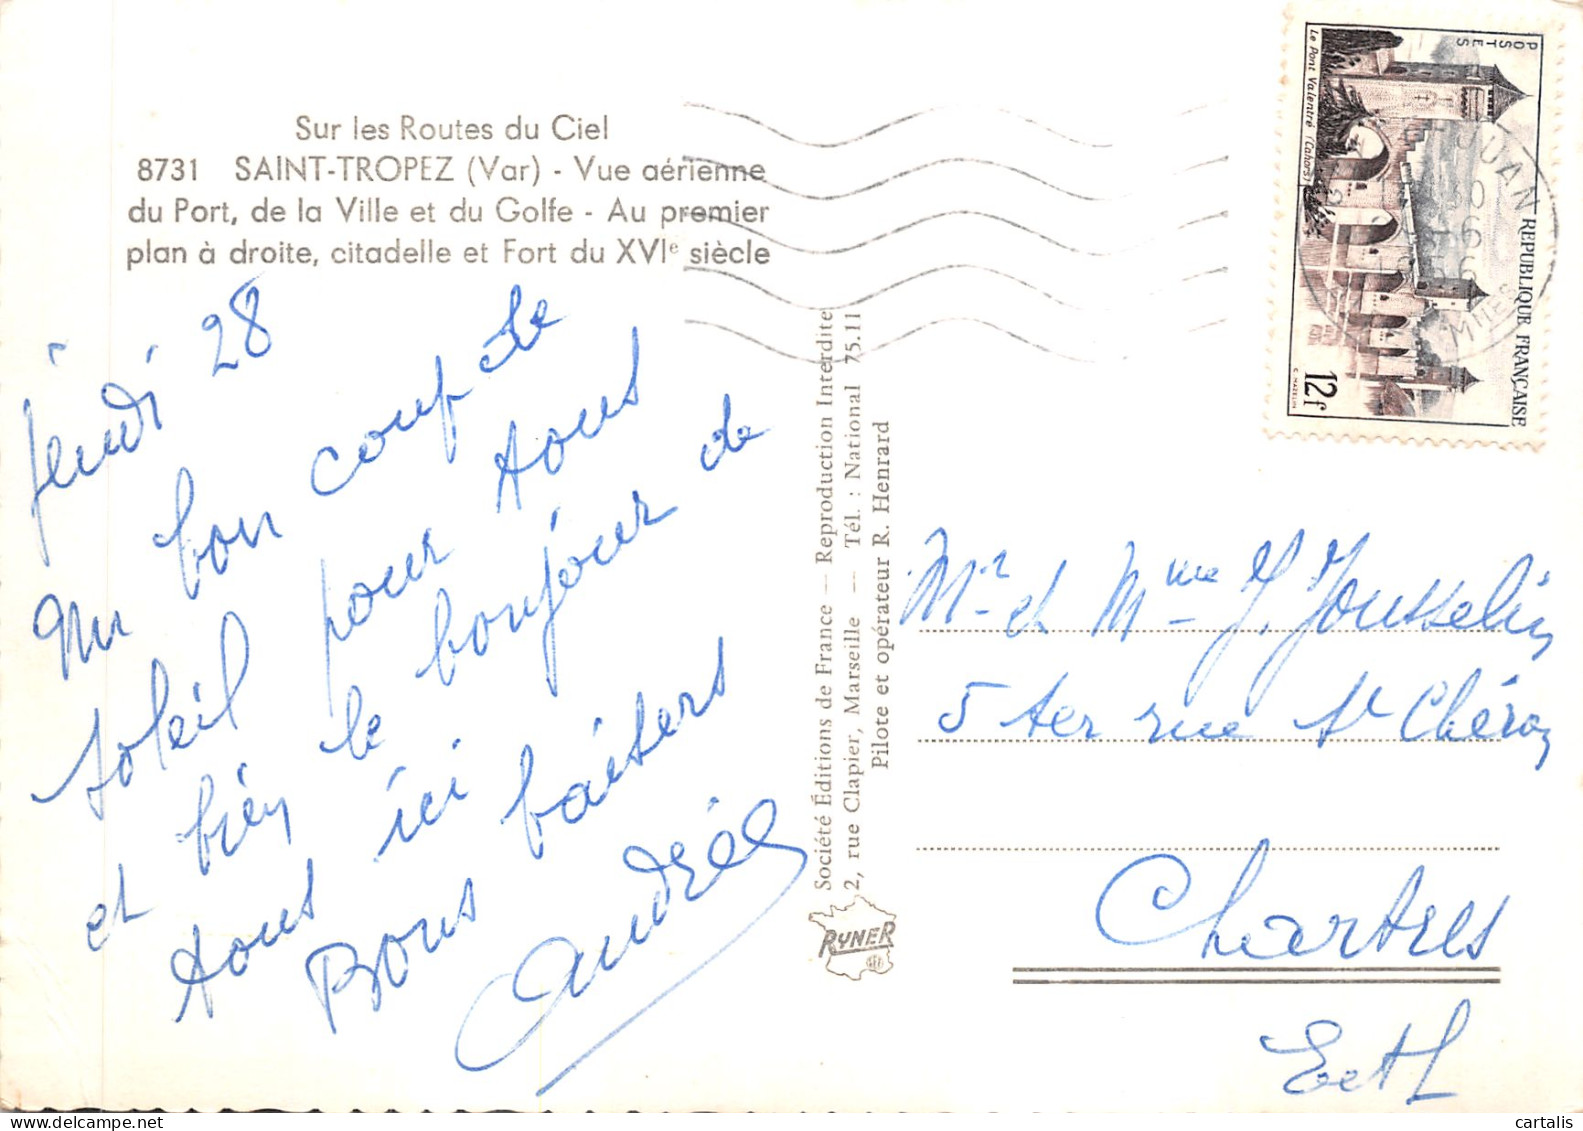 Sur les Routes du Ciel
8731 SAINT-TROPEZ (Var) - Vue aérienne
du Port, de la Ville et du Golfe - Au premier
plan à droite, citadelle et Fort du XVIe siècle
jeudi 28
Un bon coup de
soleil pour tous
et bien le bonjour de
tous ici
Bons baisers
Andrée
Société Éditions de France — Reproduction Interdite
2, rue Clapier, Marseille — Tél. : National 75.11
Pilote et opérateur R. Henrard
RYNER
POSTES
Le Pont Valentré (Cahors)
REPUBLIQUE FRANÇAISE
12f
C. MAZELIN
JUAN
Mr et Mme J. Jousselin
5 ter rue St Chéron
Chartres
E et L
cartalis